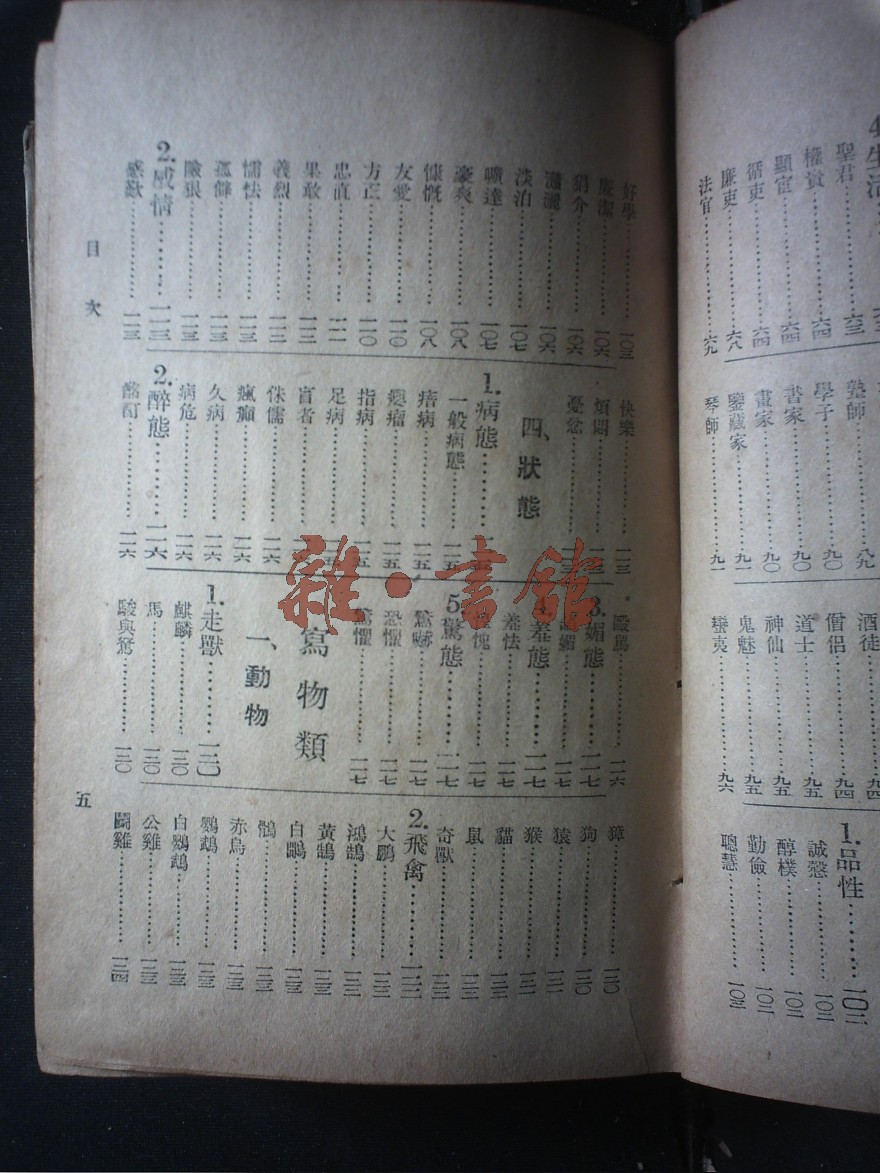 4.生活
聖君……六三
權貴……六四
顯宦……六四
循吏……六四
廉吏……六八
法官……六九
塾師……八九
學子……九〇
書家……九〇
畫家……九〇
鑒藏家……九一
琴師……九一
酒徒……九四
僧侶……九四
道士……九五
神仙……九五
鬼魅……九五
蠻夷……九六
1.品性……一〇二
誠慤……一〇二
醇樸……一〇二
勤儉……一〇二
聰慧……一〇三
好學……一〇三
廉潔……一〇六
狷介……一〇六
瀟灑……一〇六
淡泊……一〇七
曠達……一〇七
豪爽……一〇八
慷慨……一〇八
友愛……一一〇
方正……一一〇
忠直……一一一
果敢……一一二
義烈……一一二
懦怯……一一三
孤僻……一一三
險狠……一一三
2.感情……一一三
悲歎……一一三
快樂……一一三
煩悶……一一三
憂忿……一一三
四、狀態
1.病態……一一五
一般病態……一一五
痞病……一一五
癭瘤……一一五
指病……一一五
足病……
盲者……一一六
侏儒……一一六
瘋癲……一一六
久病……一一六
病危……一一六
2.醉態……一一六
酩酊……一一六
毆罵……一一六
3.媚態……一一七
媚……一一七
4.羞態……一一七
羞怯……一一七
愧……一一七
5.驚態……一一七
驚嚇……一一七
恐懼……一一七
驚懼……一一七
寫物類
一、動物
1.走獸……一二〇
麒麟……一二〇
馬……一二〇
駿與駑……一二〇
獐……一二〇
狗……一二〇
猿……一二一
猴……一二一
貓……一二一
鼠……一二一
奇獸……一二二
2.飛禽……一二二
大鵬……一二二
鴻鵠……一二二
黃鵠……一二三
白鷴……一二三
鶻……一二三
赤烏……一二三
鸚鵡……一二三
白鸚鵡……一二三
公雞……一二三
鬭雞……一二四
目次
五
雜·書館